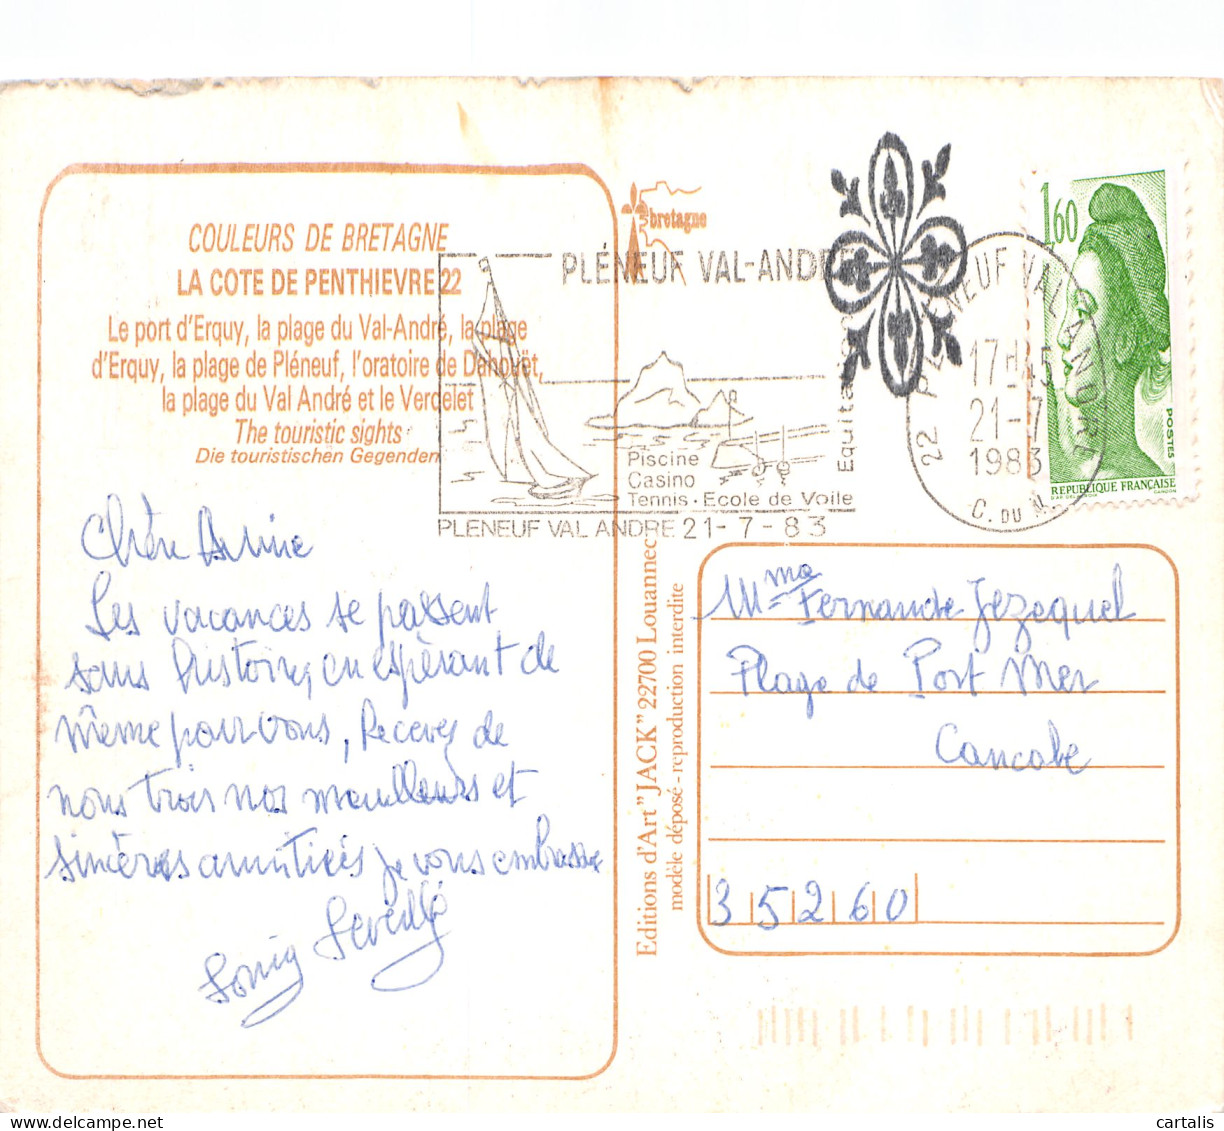 COULEURS DE BRETAGNE
LA COTE DE PENTHIEVRE 22
Le port d'Erquy, la plage du Val-André, la plage
d'Erquy, la plage de Pléneuf, l'oratoire de Dahouët,
la plage du Val André et le Verdelet
The touristic sights
Die touristischen Gegenden
bretagne
PLÉNEUF VAL-ANDRÉ
Equita
Piscine
Casino
Tennis - Ecole de Voile
PLENEUF VAL ANDRE 21-7-83
22 PLENEUF VAL ANDRE
17H45
21-7
1983
C. DU N.
1,60
POSTES
REPUBLIQUE FRANÇAISE
GANDON
Chère
Les vacances se passent
sans histoire, en espérant de
même pour vous, Recevez de
nous trois nos meilleures et
sincères amitiés je vous embrasse
Editions d'Art "JACK" 22700 Louannec
modèle déposé - reproduction interdite
Mme Fernande Jezequel
Plage de Port Mer
Cancale
35260
cartalis